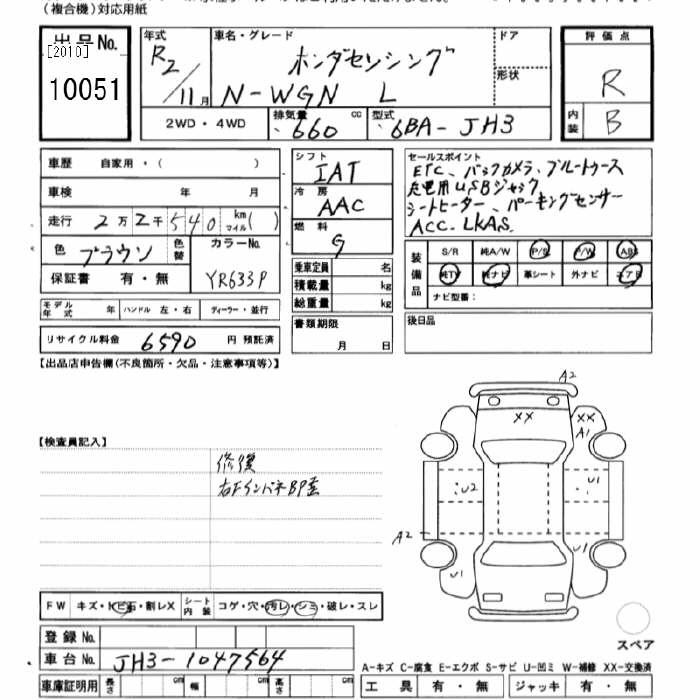 (複合機)対応用紙
出品No.
[2010]
10051
年式 R2/11月
車名・グレード ホンダセンシング
N-WGN L
ドア
形状
評価点
R
内装 B
2WD・4WD
排気量 660 cc
型式 6BA-JH3
車歴 自家用・( )
車検 年 月
走行 2万2千540 km マイル( )
色 ブラウン 色替 カラーNo. YR633P
保証書 有・無
モデル年式 年 ハンドル 左・右 ディーラー・並行
リサイクル料金 6590 円 預託済
シフト IAT
冷房 AAC
燃料 G
乗車定員 名
積載量 kg
総重量 kg
書類期限
月 日
セールスポイント
ETC、バックカメラ、ブルートゥース
充電用USBジャック
シートヒーター、パーキングセンサー
ACC、LKAS
装備品 S/R 純A/W P/S P/W ABS
純TV 純ナビ 革シート 外ナビ エアB
ナビ型番:
後日品
【出品店申告欄(不良箇所・欠品・注意事項等)】
【検査員記入】
修復
右Fインパネ BP歪
A2
XX
XX
A1
U2
U1
A2
U1
U1
スペア
FW キズ・トビ石・割レX シート内装 コゲ・穴・汚レ・シミ・破レ・スレ
登録No.
車台No. JH3-1047564
車庫証明用 長さ cm 幅 cm 高さ cm
A-キズ C-腐食 E-エクボ S-サビ U-凹ミ W-補修 XX-交換済
工具 有・無 ジャッキ 有・無